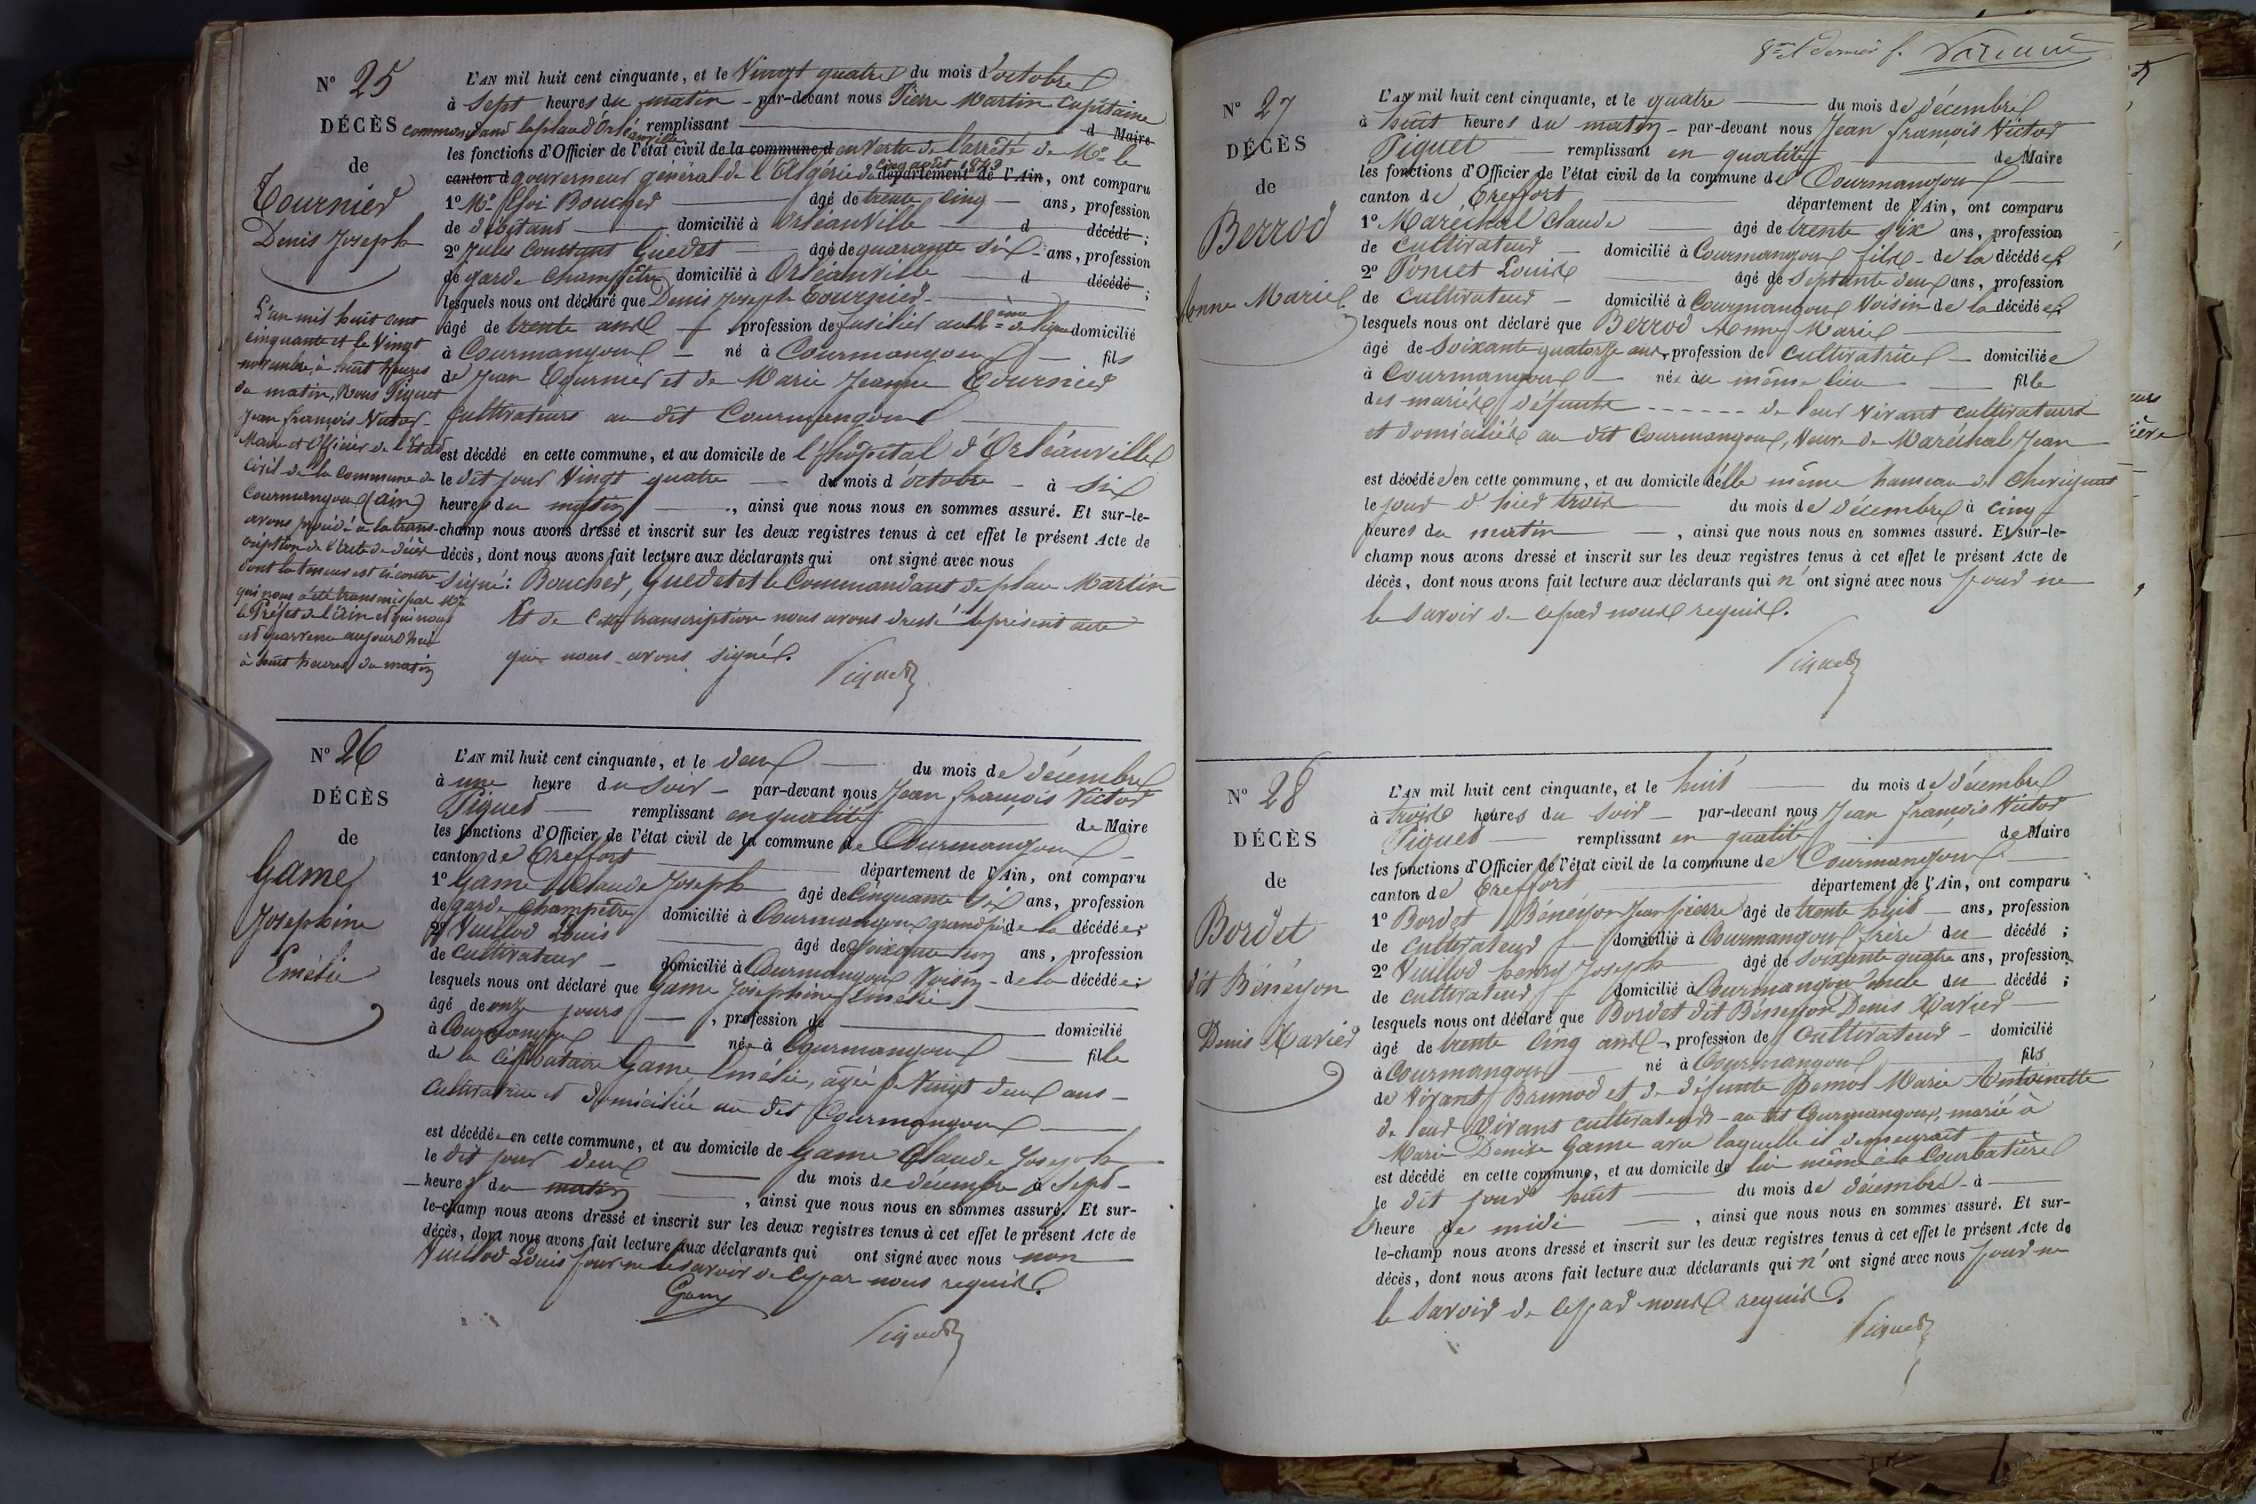 N° 25
DÉCÈS
de
Tournier
Denis Joseph
L'an mil huit cent
cinquante et le Vingt
novembre, à huit heures
du matin, Nous Piquet
Jean françois Victor
Maire et Officier de l'Etat
Civil de la Commune de
Courmangoux (ain)
avons procédé à la trans-
cription de l'acte de décès
dont la teneur est ci contre
qui nous a été transmis par Mr
le Préfet de l'ain et qui nous
est parvenu aujourd'hui
à huit heures du matin
L'AN mil huit cent cinquante, et le Vingt quatre du mois d'octobre
à Sept heures du matin - par-devant nous Pierre Martin Capitaine
commandant la place d'Orléanville remplissant d Maire
les fonctions d'Officier de l'état civil de la commune d en vertu de l'arrêté de Mr. le
canton d gouverneur général de l'Algérie du cinq août 1843 département de l'Ain, ont comparu
1° Mr. Eloi Boucher âgé de trente cinq ans, profession
de débitant domicilié à Orléanville d décédé ;
2° Jules Constant Guedet âgé de quarante six ans, profession
de garde champêtre domicilié à Orléanville d décédé ;
lesquels nous ont déclaré que Denis Joseph Tournier
âgé de trente ans, profession de fusilier au ème de ligne domicilié
à Courmangoux né à Courmangoux fils
de Jean Tournier et de Marie Jeanne Tournier
Cultivateurs au dit Courmangoux
est décédé en cette commune, et au domicile de l'hôpital d'Orléanville
le dit jour Vingt quatre du mois d'octobre à six
heures du matin, ainsi que nous nous en sommes assuré. Et sur-le-
champ nous avons dressé et inscrit sur les deux registres tenus à cet effet le présent Acte de
décès, dont nous avons fait lecture aux déclarants qui ont signé avec nous
Signé: Boucher, Guedet et le Commandant de place Martin
Et de Cette transcription nous avons dressé le présent acte
que nous avons signé.
Piquet
N° 26
DÉCÈS
de
Game
Josephine
Emélie
L'AN mil huit cent cinquante, et le deux du mois de décembre
à une heure du soir - par-devant nous Jean françois Victor
Piquet remplissant en qualité de Maire
les fonctions d'Officier de l'état civil de la commune de Courmangoux
canton de Treffort département de l'Ain, ont comparu
1° Game Claude Joseph âgé de Cinquante six ans, profession
de garde champêtre domicilié à Courmangoux grand père de la décédée ;
2° Vuillod Louis âgé de Soixante un ans, profession
de Cultivateur domicilié à Courmangoux Voisin de la décédée ;
lesquels nous ont déclaré que Game Joséphine Emélie
âgé de onze jours, profession de domicilié
à Courmangoux née à Courmangoux fille
de la Célibataire Game Emélie, agée de Vingt deux ans
Cultivatrice et domiciliée au dit Courmangoux
est décédée en cette commune, et au domicile de Game Claude Joseph
le dit jour deux du mois de décembre à Sept
heures du matin, ainsi que nous nous en sommes assuré. Et sur-
le-champ nous avons dressé et inscrit sur les deux registres tenus à cet effet le présent Acte de
décès, dont nous avons fait lecture aux déclarants qui ont signé avec nous non
Vuillod Louis pour ne le savoir de ce par nous requis.
Game
Piquet
8me et dernier f.
N° 27
DÉCÈS
de
Berrod
Anne Marie
L'AN mil huit cent cinquante, et le quatre du mois de décembre
à huit heures du matin - par-devant nous Jean françois Victor
Piquet remplissant en qualité de Maire
les fonctions d'Officier de l'état civil de la commune de Courmangoux
canton de Treffort département de l'Ain, ont comparu
1° Maréchal Claude âgé de trente six ans, profession
de cultivateur domicilié à Courmangoux fils de la décédée ;
2° Poncet Louis âgé de Septante deux ans, profession
de Cultivateur domicilié à Courmangoux Voisin de la décédée ;
lesquels nous ont déclaré que Berrod Anne Marie
âgé de Soixante quatorze ans, profession de Cultivatrice domiciliée
à Courmangoux née au même lieu fille
des mariés défunts - - - - - - de leur vivant cultivateurs
et domiciliés au dit Courmangoux, Veuve de Maréchal Jean
est décédée en cette commune, et au domicile d'elle même hameau de
le jour d'hier trois du mois de décembre à cinq
heures du matin, ainsi que nous nous en sommes assuré. Et sur-le-
champ nous avons dressé et inscrit sur les deux registres tenus à cet effet le présent Acte de
décès, dont nous avons fait lecture aux déclarants qui n'ont signé avec nous pour ne
le savoir de ce par nous requis.
Piquet
N° 28
DÉCÈS
de
Bordet
dit Bénéyon
Denis Xavier
L'AN mil huit cent cinquante, et le huit du mois de décembre
à trois heures du soir - par-devant nous Jean françois Victor
Piquet remplissant en qualité de Maire
les fonctions d'Officier de l'état civil de la commune de Courmangoux
canton de Treffort département de l'Ain, ont comparu
1° Bordet Bénéyon Jean pierre âgé de trente huit ans, profession
de cultivateur domicilié à Courmangoux frère du décédé ;
2° Vuillod Joseph âgé de soixante quatre ans, profession
de cultivateur domicilié à Courmangoux oncle du décédé ;
lesquels nous ont déclaré que Bordet dit Bénéyon Denis Xavier
âgé de trente cinq ans, profession de Cultivateur domicilié
à Courmangoux né à Courmangoux fils
de Vivant Brunod et de défunte Marie Antoinette
de leur vivans cultivateurs au dit Courmangoux, marié à
Marie Denise Game avec laquelle il demeurait
est décédé en cette commune, et au domicile de lui même à la Courbatière
le dit jour huit du mois de décembre à
heure de midi, ainsi que nous nous en sommes assuré. Et sur-
le-champ nous avons dressé et inscrit sur les deux registres tenus à cet effet le présent Acte de
décès, dont nous avons fait lecture aux déclarants qui n'ont signé avec nous pour ne
le savoir de ce par nous requis.
Piquet